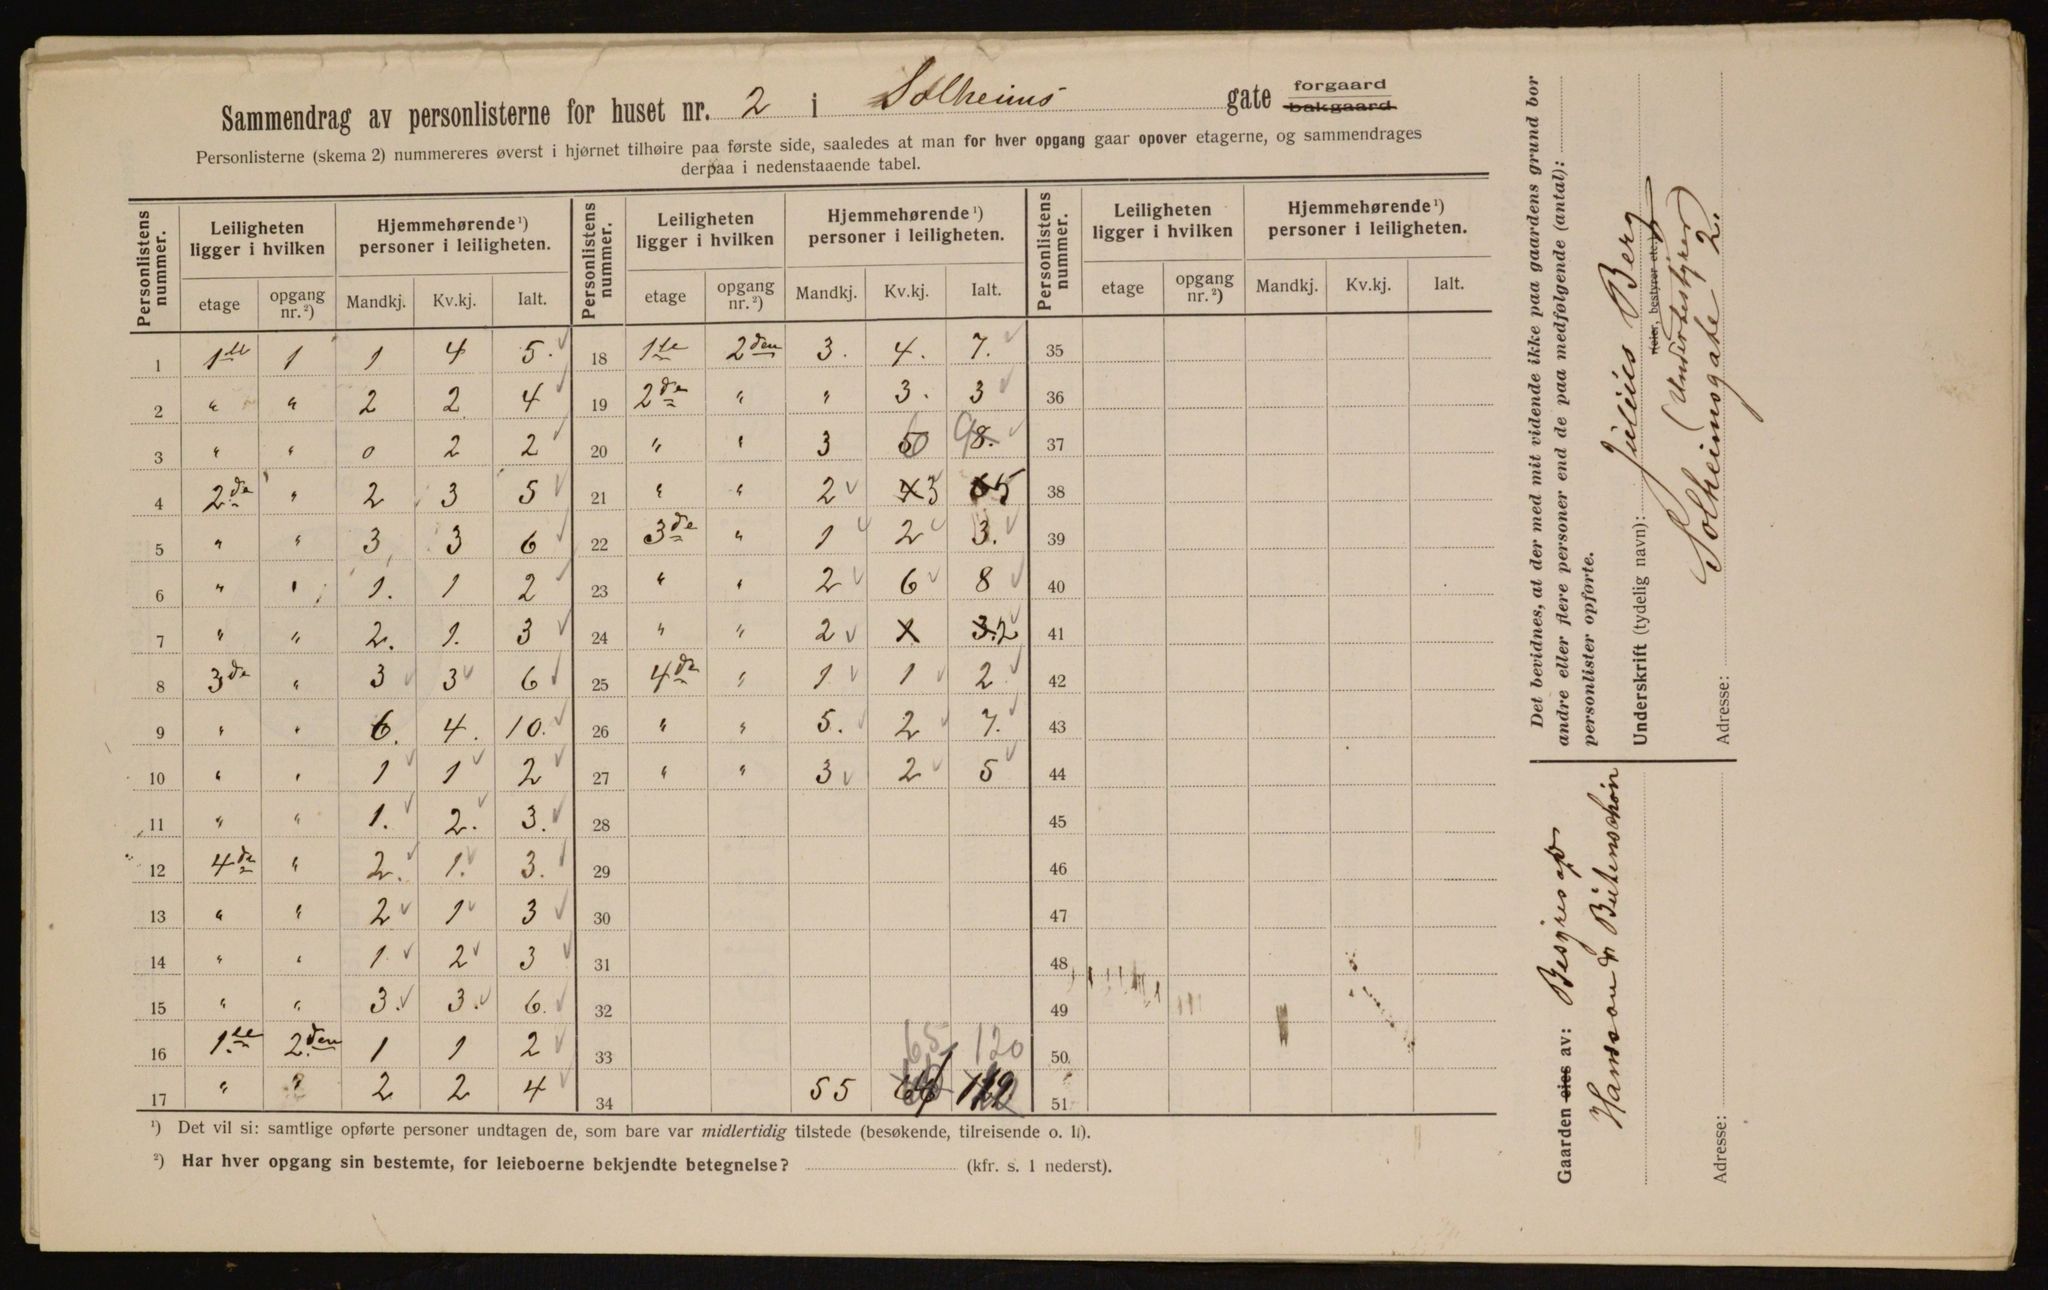 Sammendrag av personlisterne for huset nr. 2 i Solheims gate forgaard
bakgaard
Personlisterne (skema 2) nummereres øverst i hjørnet tilhøire paa første side, saaledes at man for hver opgang gaar opover etagerne, og sammendrages
derpaa i nedenstaaende tabel.
Personlistens nummer. Leiligheten ligger i hvilken Hjemmehørende ¹) personer i leiligheten. Personlistens nummer. Leiligheten ligger i hvilken Hjemmehørende ¹) personer i leiligheten. Personlistens nummer. Leiligheten ligger i hvilken Hjemmehørende ¹) personer i leiligheten.
etage opgang nr. ²) Mandkj. Kv.kj. Ialt. etage opgang nr. ²) Mandkj. Kv.kj. Ialt. etage opgang nr. ²) Mandkj. Kv.kj. Ialt.
1 1ste 1 1 4 5. 18 1ste 2den 3. 4. 7. 35
2 " " 2 2 4 19 2de " " 3. 3 36
3 " " 0 2 2 20 " " 3 6 9 8. 37
4 2de " 2 3 5 21 " " 2 3 5 38
5 " " 3 3 6 22 3de " 1 2 3. 39
6 " " 1. 1 2 23 " " 2 6 8 40
7 " " 2. 1. 3 24 " " 2 x 3. 2 41
8 3de " 3 3 6 25 4de " 1 1 2 42
9 " " 6. 4. 10. 26 " " 5. 2 7. 43
10 " " 1 1 2 27 " " 3 2 5 44
11 " " 1. 2. 3. 28 45
12 4de " 2. 1. 3. 29 46
13 " " 2 1 3 30 47
14 " " 1 2 3 31 48
15 " " 3. 3. 6. 32 49
16 1ste 2den 1 1 2 33 65 120 50
17 " " 2 2 4 34 55 51
¹) Det vil si: samtlige opførte personer undtagen de, som bare var midlertidig tilstede (besøkende, tilreisende o. l.).
²) Har hver opgang sin bestemte, for leieboerne bekjendte betegnelse? (kfr. s. 1 nederst).
Det bevidnes, at der med mit vidende ikke paa gaardens grund bor
andre eller flere personer end de paa medfølgende (antal):
personlister opførte.
Underskrift (tydelig navn): Julius Berg
(eier, bestyrer etc.)
(Underbestyrer)
Adresse: Solheimsgate 2.
Gaarden eies av: Besyres af
Hansson & Bietenschön
Adresse: